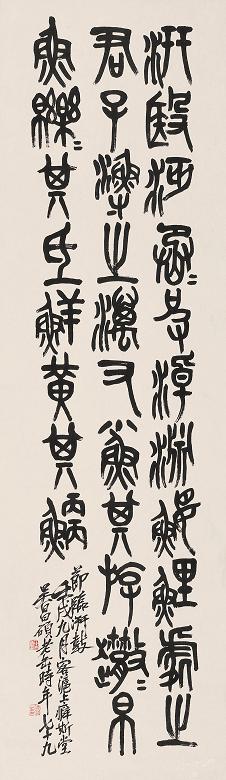 汧殹沔丞〻皮淖淵鰋鯉處之
君子漁之澫又小魚其斿趣帛
魚皪〻其氐鮮黄其鯾
節臨汧鼓
壬戌九月客滬上癖斯堂
吳昌碩老缶時年七十九